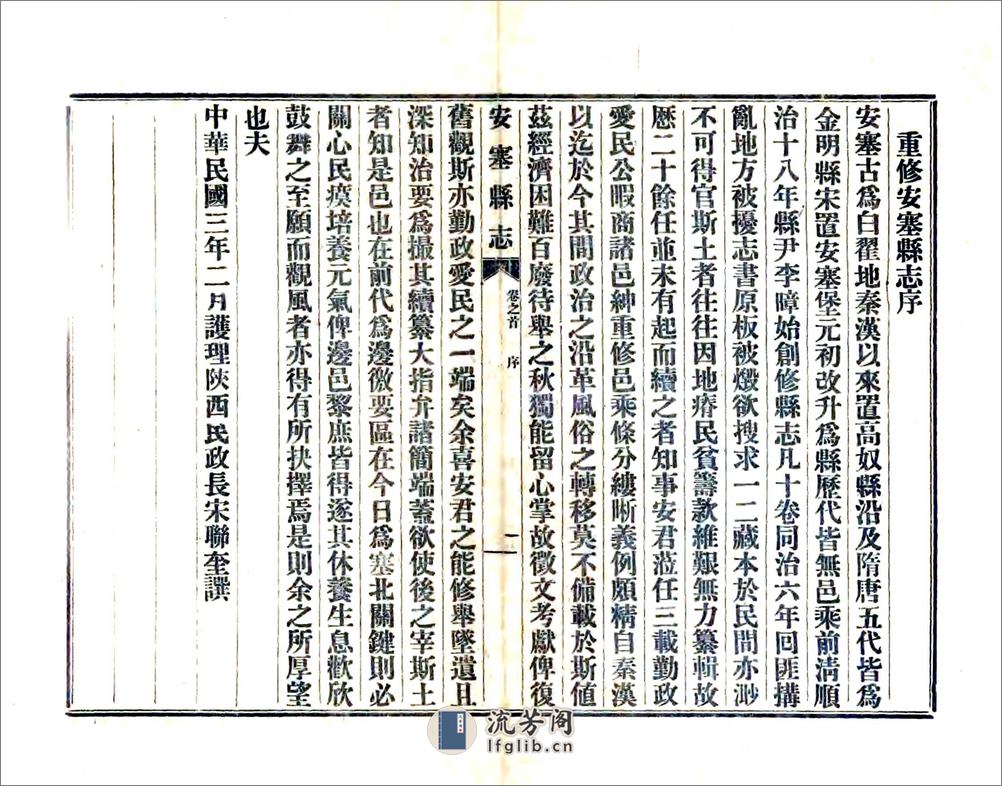 重修安塞縣志序
安塞古爲白翟地秦漢以來置高奴縣沿及隋唐五代皆爲
金明縣宋置安塞堡元初改升爲縣歷代皆無邑乘前淸順
治十八年縣尹李暲始創修縣志凡十卷同治六年回匪搆
亂地方被擾志書原板被燬欲搜求一二藏本於民間亦渺
不可得官斯土者往往因地瘠民貧籌款維艱無力纂輯故
歷二十餘任並未有起而續之者知事安君蒞任三載勤政
愛民公暇商諸邑紳重修邑乘條分縷晰義例頗精自秦漢
以迄於今其間政治之沿革風俗之轉移莫不備載於斯値
茲經濟困難百廢待舉之秋獨能留心掌故徵文考獻俾復
安塞縣志
卷之首
序
一
舊觀斯亦勤政愛民之一端矣余喜安君之能修舉墜遺且
深知治要爲撮其續纂大指弁諸簡端蓋欲使後之宰斯土
者知是邑也在前代爲邊徼要區在今日爲塞北關鍵則必
關心民瘼培養元氣俾邊邑黎庶皆得遂其休養生息歡欣
鼓舞之至願而觀風者亦得有所抉擇焉是則余之所厚望
也夫
中華民國三年二月護理陝西民政長宋聯奎譔
流芳阁
lfglib.cn